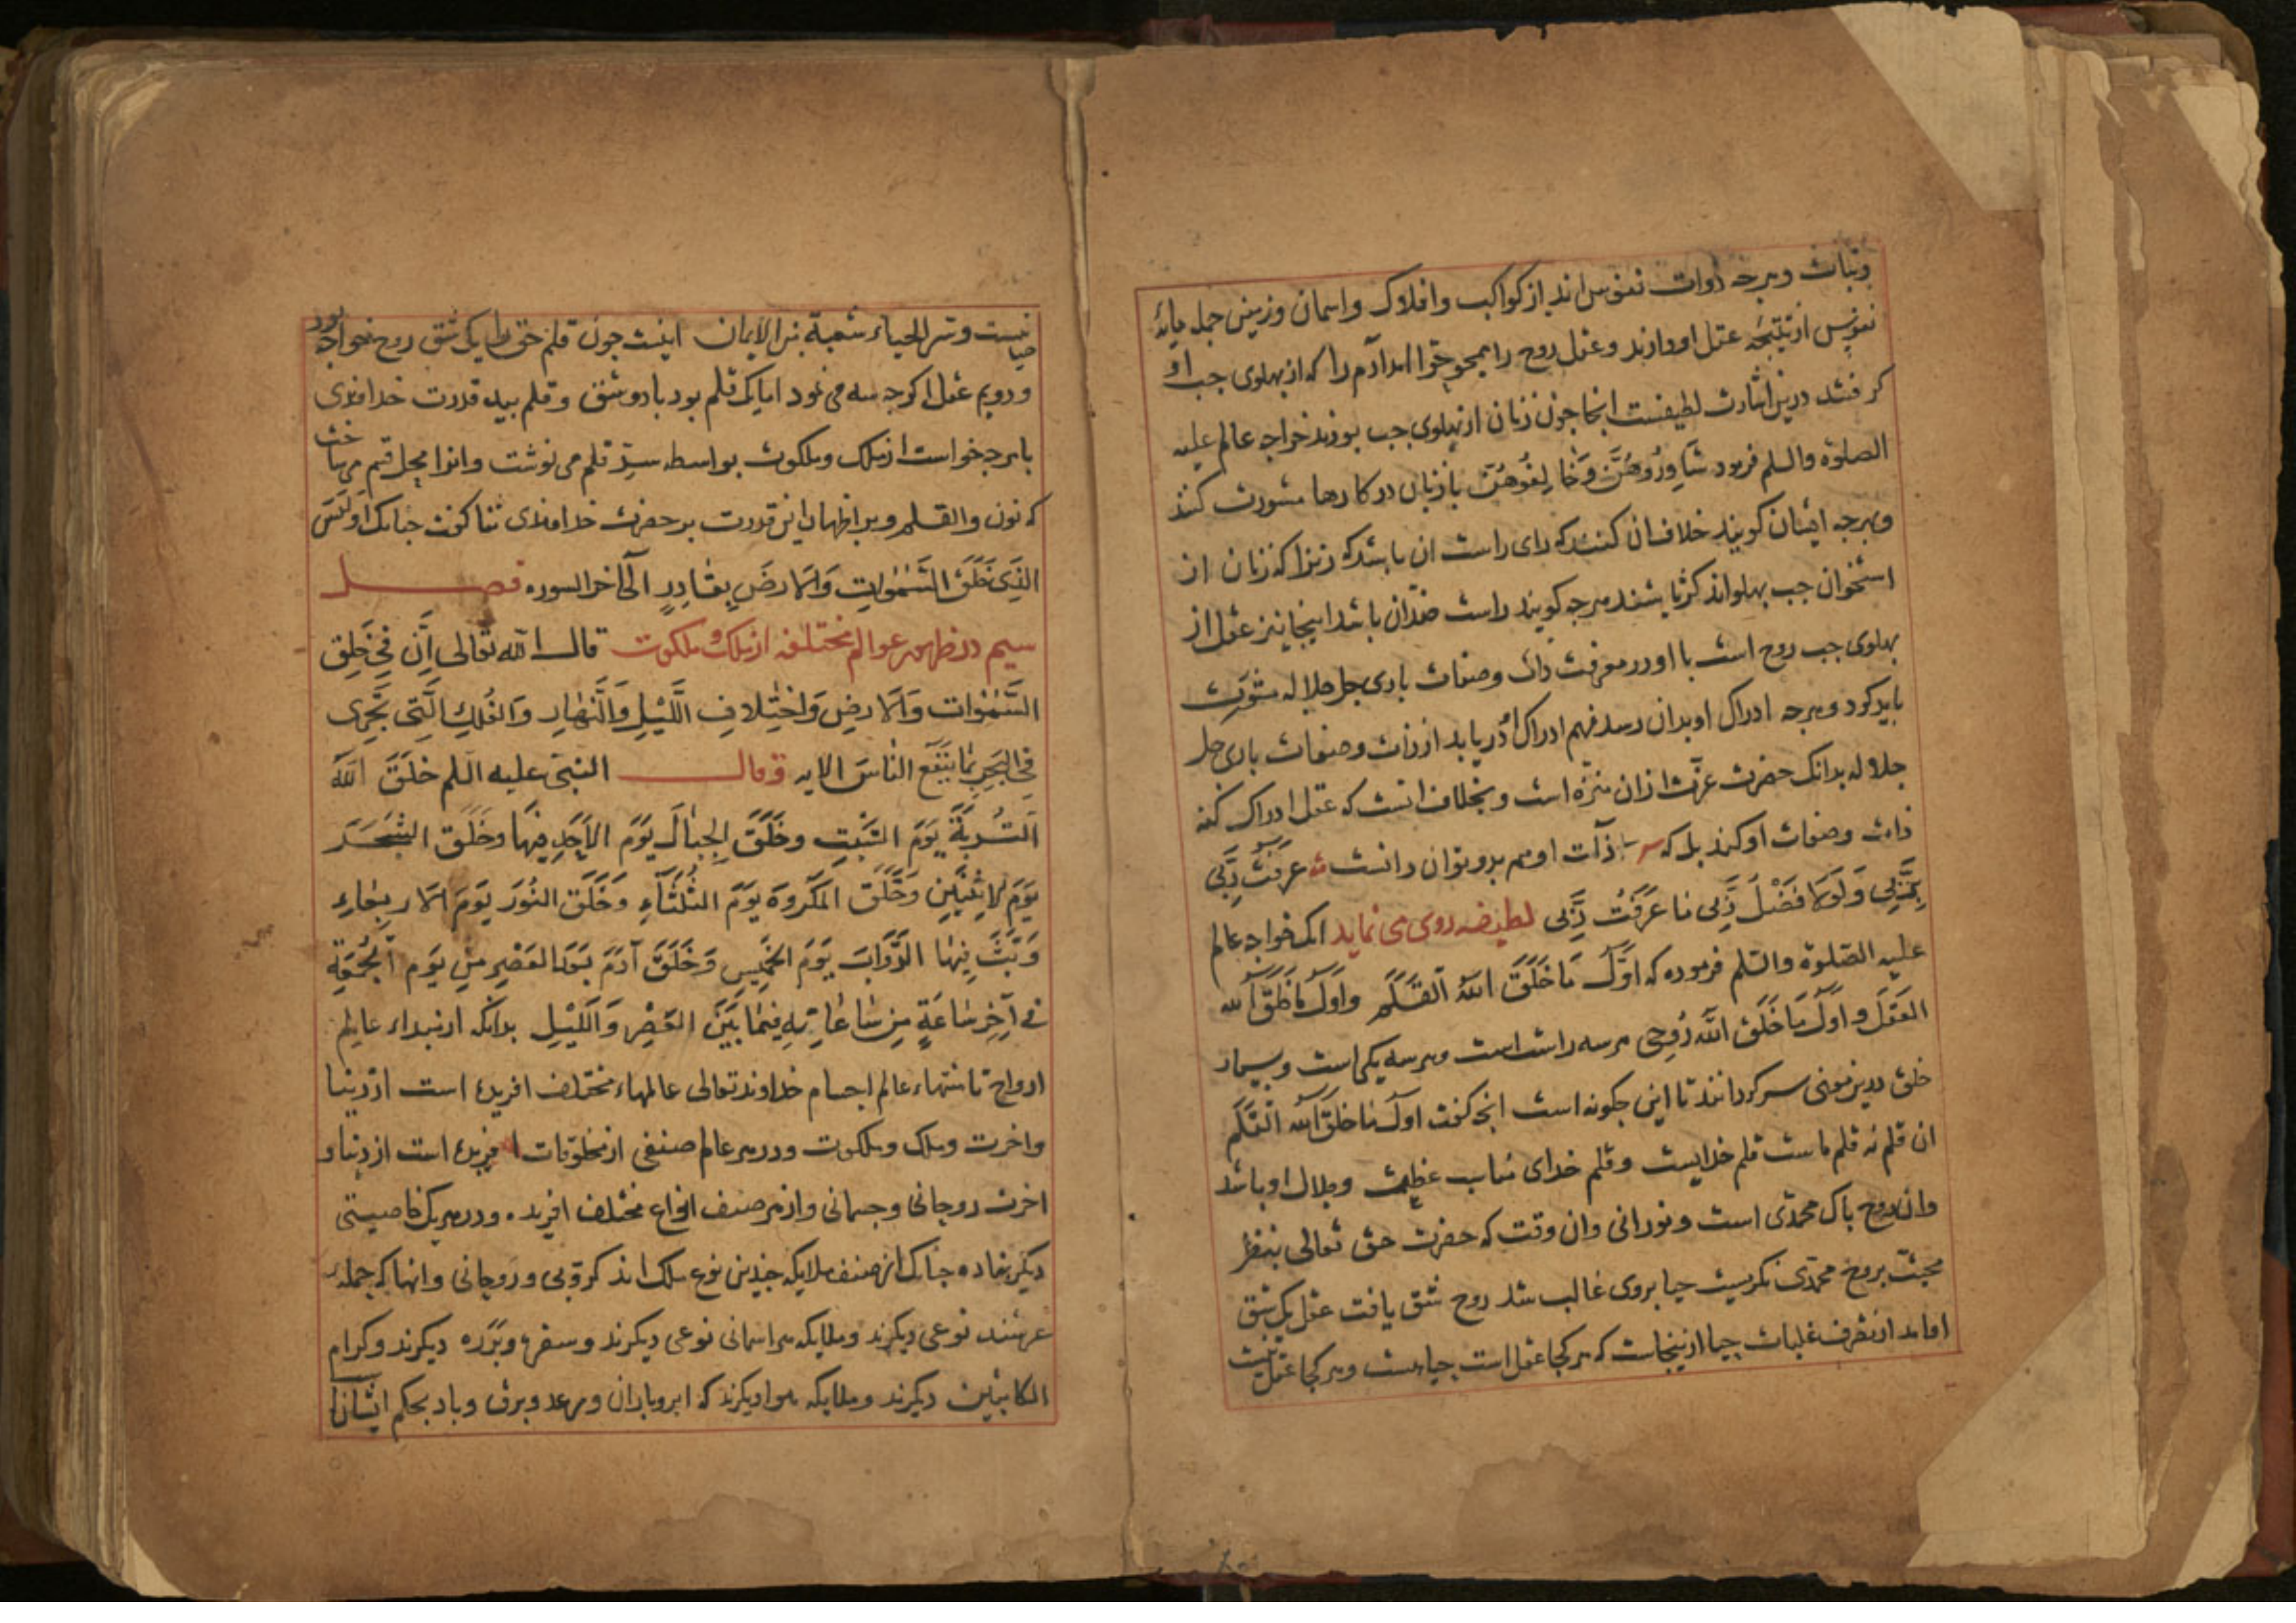 ونبات وهرچه ذوات نفوس اند از کواکب وافلاک واسمان وزمین جمله مایهٔ
نفوس از نتیجه عقل او دارند وعقل روح را همچو حوا امد آدم را که از پهلوی چپ او
کرفتند درین اشارت لطیفست انجا چون زنان از پهلوی چپ بودند خواجه عالم علیه
الصلوة والسلم فرمود شَاوِرُوهُنَّ وَخَالِفُوهُنَّ با زنان در کارها مشورت کنند
وهرچه ایشان کویند خلاف ان کنند که رای راست ان باشد که زیرا که زنان از
استخوان چپ پهلواند کژ باشند هرچه کویند راست ضد ان باشد اینجا نیز عقل از
پهلوی چپ روح است با او در معرفت ذات وصفات باری جل جلاله مشورت
باید کرد وهرچه ادراک او بدان رسد وفهم ادراک او دریابد از ذات وصفات باری جل
جلاله بدانک حضرت عزت ازان منزه است وبخلاف انست که عقل ادراک کنه
ذات وصفات او کند بل که ذات او هم بدو توان دانست عَرَفْتُ رَبِّی
بِرَبِّی وَلَولَا فَضْلُ رَبِّی مَا عَرَفْتُ رَبِّی لطیفه روی می نماید انک خواجه عالم
علیه الصلوة والسلم فرموده که اَوَّلُ مَا خَلَقَ اللّٰهُ القَلَمُ واَوَّلُ مَا خَلَقَ اللّٰه
العَقلُ واَوَّلُ مَا خَلَقَ اللّٰه رُوحِی هر سه راست است وهر سه یکی است وبسیار
خلق درین معنی سرکردانند تا این چکونه است انچ کفت اول مَا خَلَقَ اللّٰه القَلَم
ان قلم نه قلم ماست قلم خدایست وقلم خدای مناسب عظمت وجلال او باشد
وان روح پاک محمدی است ونورانی وان وقت که حضرت حق تعالی بنظر
محبت بروح محمدی نکریست حیا بروی غالب شد روح شق یافت عقل یک شق
او امد از شرف غلبات حیا ازینجاست که هر کجا عقل است حیا هست وهر کجا عقل نیست
حیا نیست وسر الحیاء شعبة من الایمان اینست چون قلم حق را یک شق روح خواجه بود
ودویم عقل اکرچه سه می نمود اما یک قلم بود با دو شق وقلم بید قدرت خداوندی
با هرچه خواست از ملک وملکوت بواسطه سر قلم می نوشت وانرا محل قسم می ساخت
که نون والقلم وبر اظهار این قدرت بر حضرت خداوندی ثنا کفت چنانک اَوَلَیسَ
الَّذِی خَلَقَ السَّمٰوَاتِ وَالاَرضَ بِقَادِرٍ الی آخر السوره فصل
سیم در ظهور عوالم مختلفه از ملک وملکوت قال اللّٰه تعالی اِنَّ فِی خَلقِ
السَّمٰوَات وَالاَرضِ وَاختِلَافِ اللَّیلِ وَالنَّهَارِ وَالفُلكِ الَّتِی تَجرِی
فِی البَحرِ بِمَا یَنفَع النَّاسَ الایه وقال النبی علیه السلم خَلَقَ اللّٰهُ
التُّربَةَ یَومَ السَّبتِ وخَلَقَ الجِبَالَ یَومَ الاَحَدِ فِیهَا وخَلَقَ الشَّجَرَ
یَومَ الاِثنَینِ وَخَلَقَ المَکرُوهَ یَومَ الثُّلَثَاءِ وَخَلَقَ النُّورَ یَومَ الاَربِعَاءِ
وَبَثَّ فِیهَا الدَّوَابَّ یَومَ الخَمِیسِ وَخَلَقَ آدَمَ بَعدَ العَصرِ مِن یَومِ الجُمُعَةِ
فِی آخِرِ سَاعَةٍ مِن سَاعَاتِهِ فِیمَا بَینَ العَصرِ وَاللَّیلِ بدانکه از مبداء عالم
ارواح تا منتهاء عالم اجسام خداوند تعالی عالمهاء مختلف افریده است از دنیا
واخرت وملک وملکوت ودر هر عالم صنفی از مخلوقات افریده است از دنیا و
اخرت روحانی وجسمانی واز هر صنف انواع مختلف افریده ودر هر یک خاصیتی
دیکر نهاده چنانک از صنف ملایکه چندین نوع ملک اند کروبی وروحانی وانها که حمله
عرشند نوعی دیکرند وملایکه هر اسمانی نوعی دیکرند وسفره وبرره دیکرند وکرام
الکاتبین دیکرند وملایکه هوا دیکرند که ابر وباران ورعد وبرق وباد بحکم ایشان